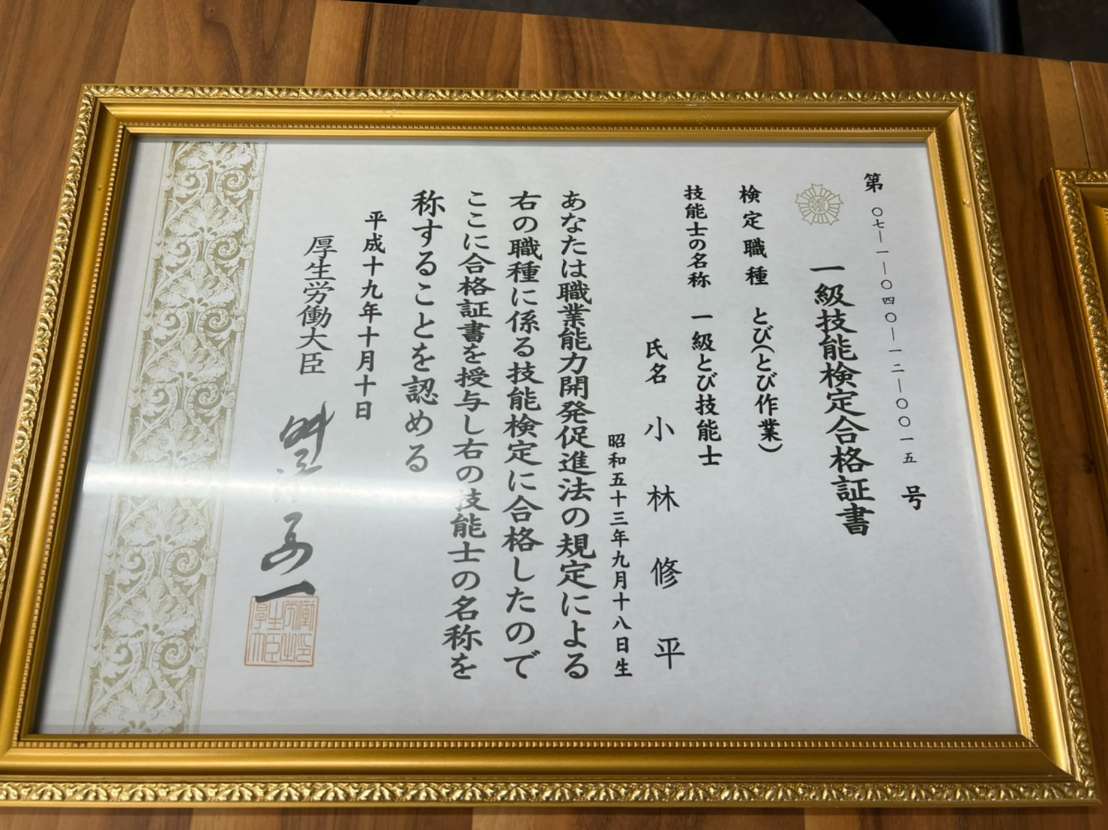 第〇七―一―〇四〇―一二―〇〇一五号
一級技能検定合格証書
検定職種　とび(とび作業)
技能士の名称　一級とび技能士
氏名　小林修平
昭和五十三年九月十八日生
あなたは職業能力開発促進法の規定による
右の職種に係る技能検定に合格したので
ここに合格証書を授与し右の技能士の名称を
称することを認める
平成十九年十月十日
厚生労働大臣